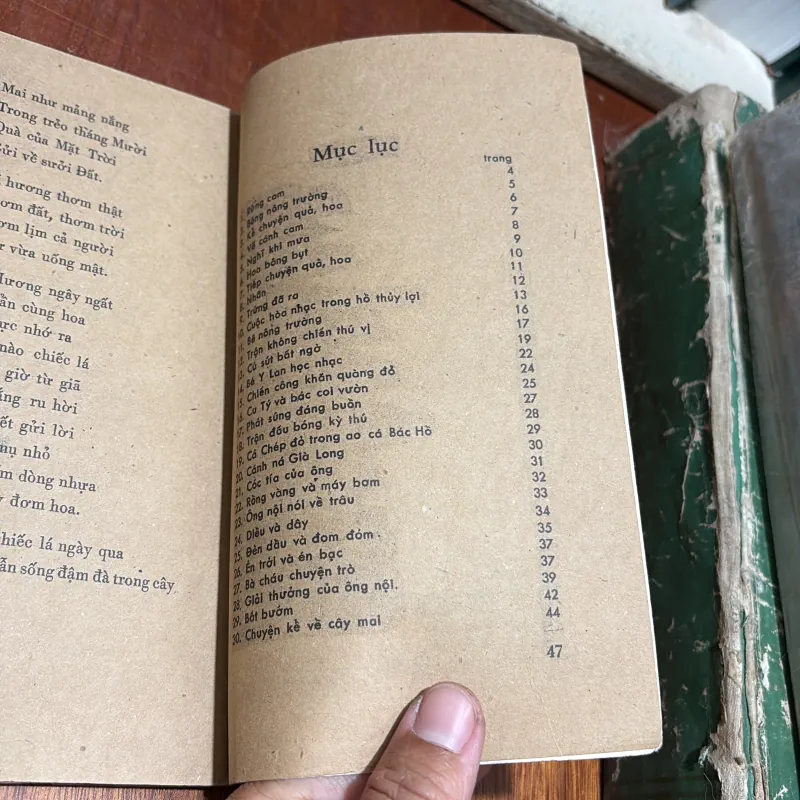 Mai như mảng nắng
Trong trẻo tháng Mười
Quà của Mặt Trời
Gửi về sưởi Đất.
hương thơm thật
thơm đất, thơm trời
lịm cả người
vừa uống mật.
Hương ngây ngất
cùng hoa
nhớ ra
nào chiếc lá
giờ từ giã
ru hời
gửi lời
nụ nhỏ
dòng nhựa
đơm hoa.
chiếc lá ngày qua
sống đậm đà trong cây
Mục lục
trang
cam 4
nông trường 5
Kể chuyện quả, hoa 6
Vẽ cánh cam 7
Nghĩ khi mưa 8
Hoa bông bụt 9
Tiếp chuyện quả, hoa 10
Nhãn 11
9. Trứng đã ra 12
10. Cuộc hòa nhạc trong hồ thủy lợi 13
11. Bê nông trường 16
12. Trận không chiến thú vị 17
13. Cú sút bất ngờ 19
14. Bé Y Lan học nhạc 22
15. Chiến công khăn quàng đỏ 24
16. Cu Tý và bác coi vườn 25
17. Phát súng đáng buồn 27
18. Trận đấu bóng kỳ thú 28
19. Cá Chép đỏ trong ao cá Bác Hồ 29
20. Cánh ná Già Long 30
21. Cóc tía của ông 31
22. Rồng vàng và máy bơm 32
23. Ông nội nói về trâu 33
24. Diều và dây 34
25. Đèn dầu và đom đóm 35
26. Én trời và én bạc 37
27. Bà cháu chuyện trò 37
28. Giải thưởng của ông nội. 39
29. Bắt bướm 42
30. Chuyện kể về cây mai 44
47